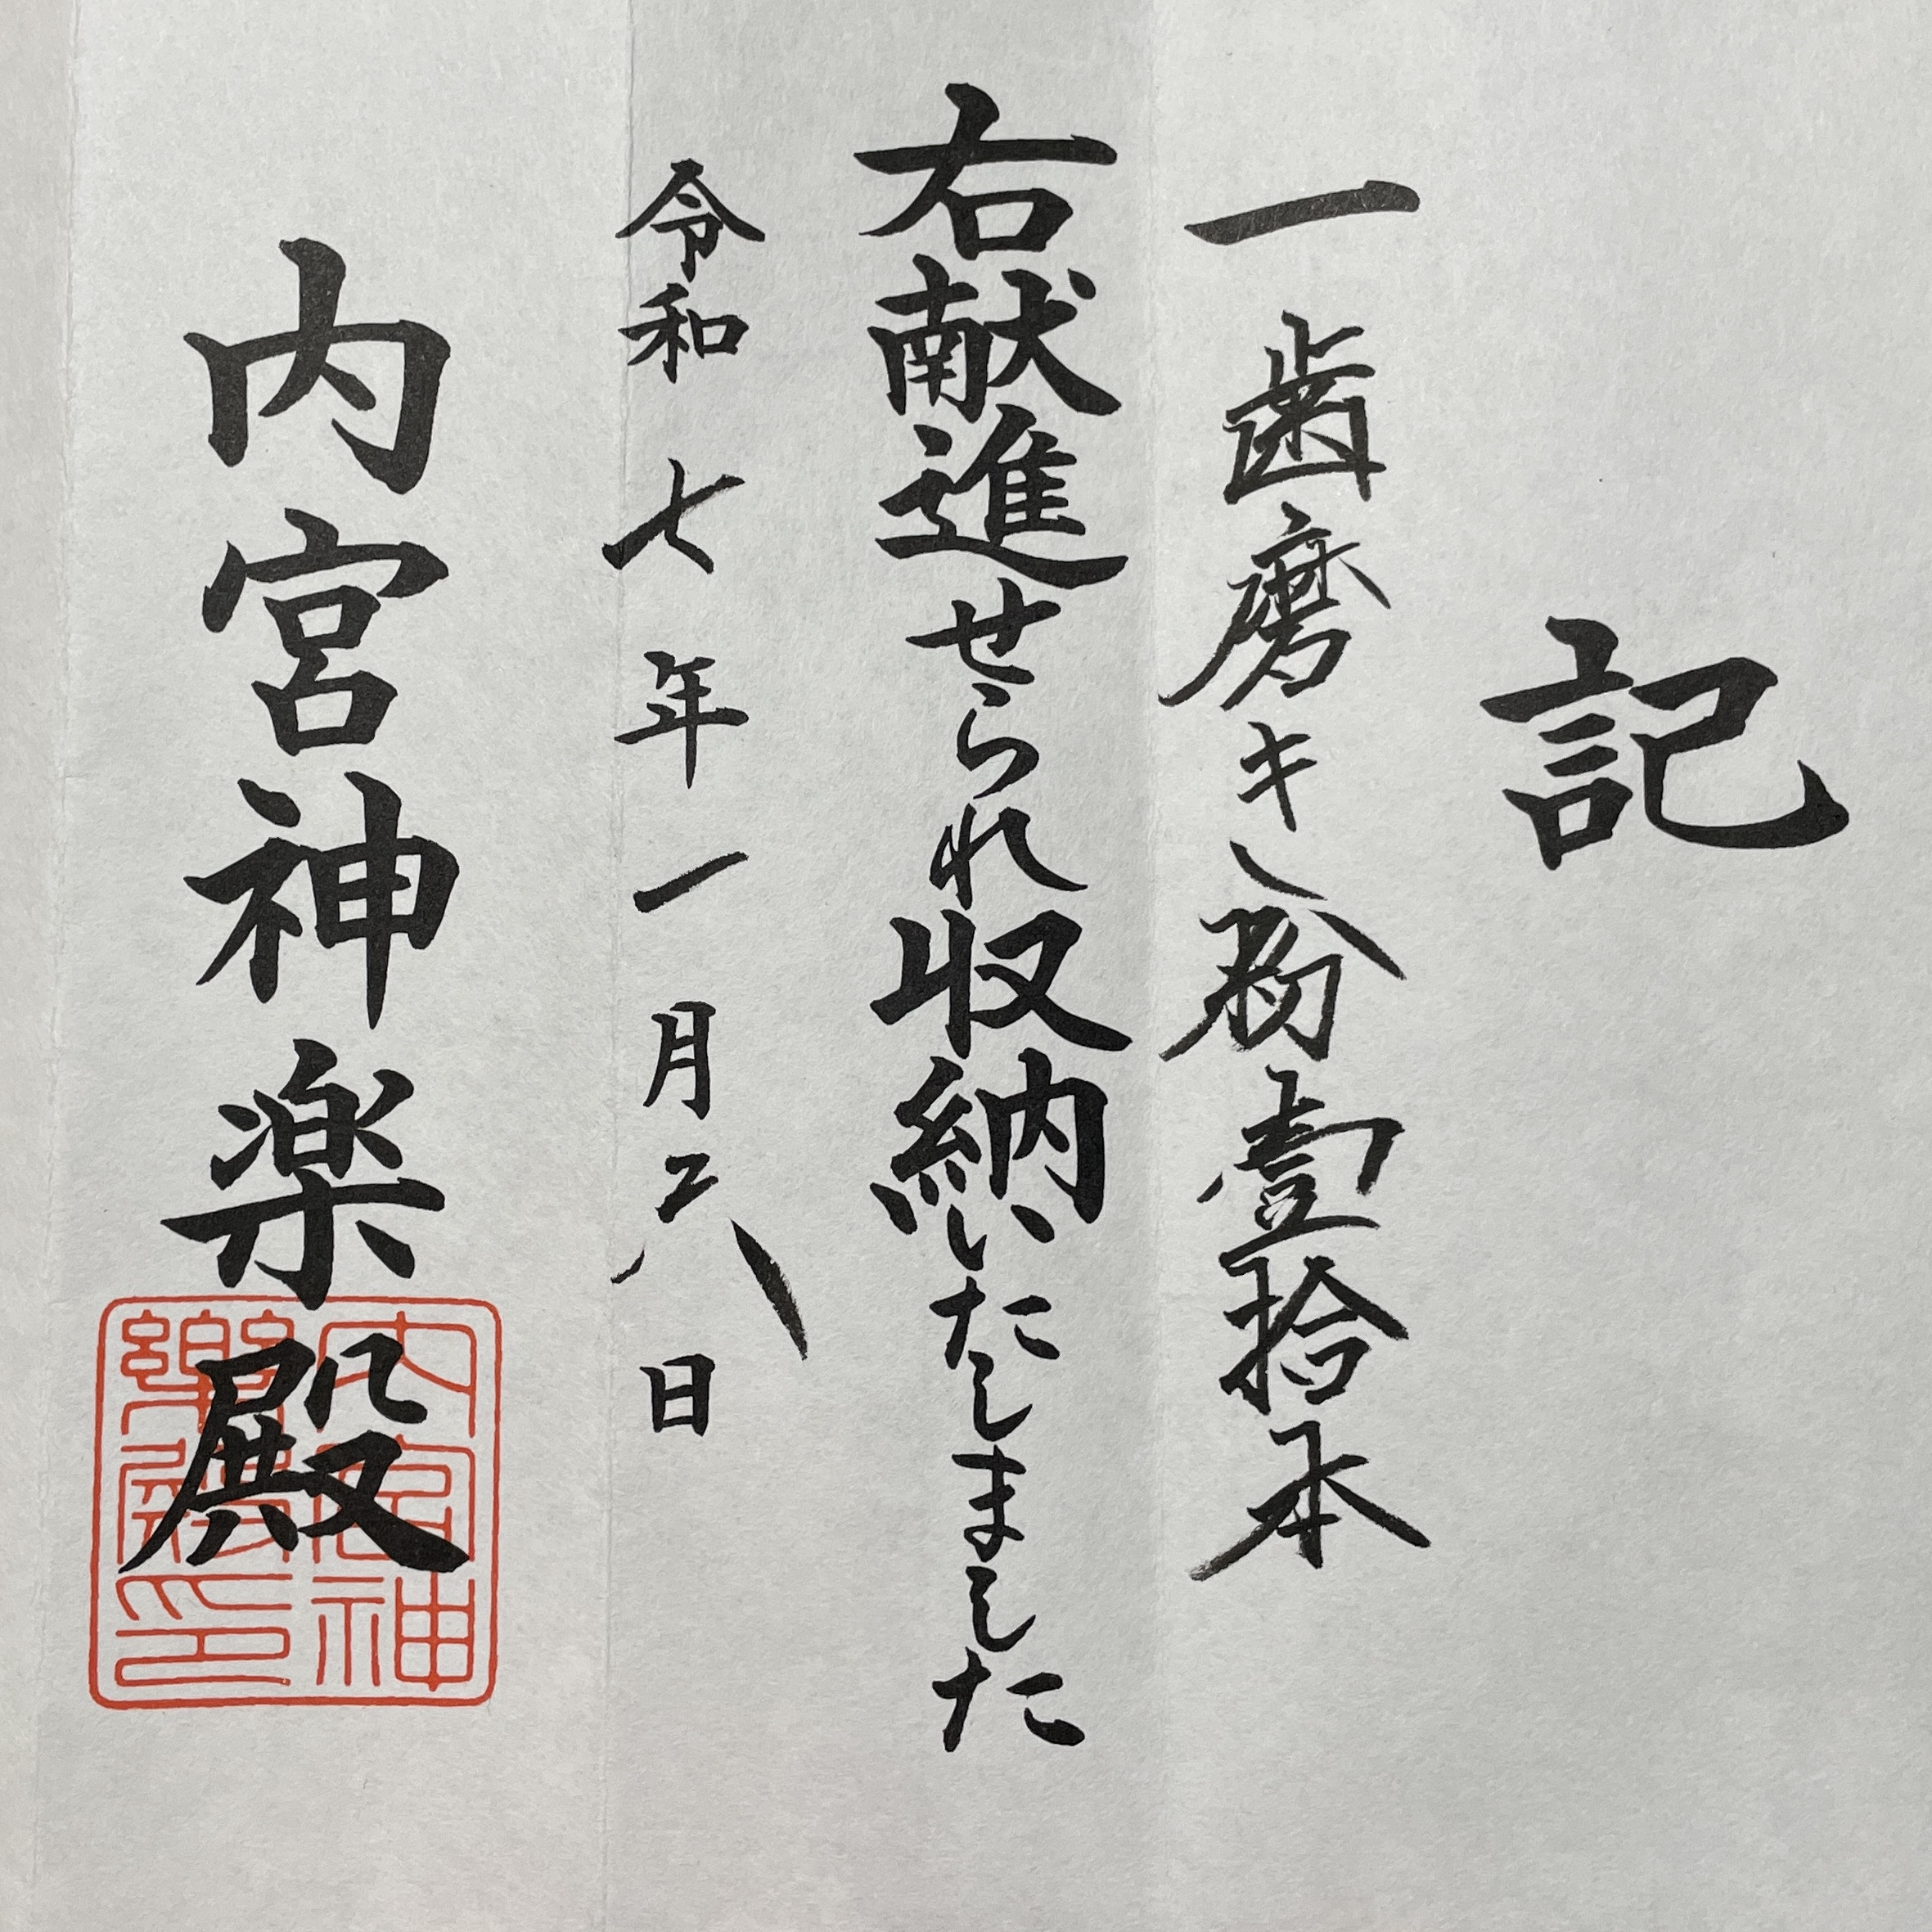 記
一 歯磨キ粉壹拾本
右献進せられ収納いたしました
令和七年一月二八日
内宮神楽殿
内宮神樂殿印